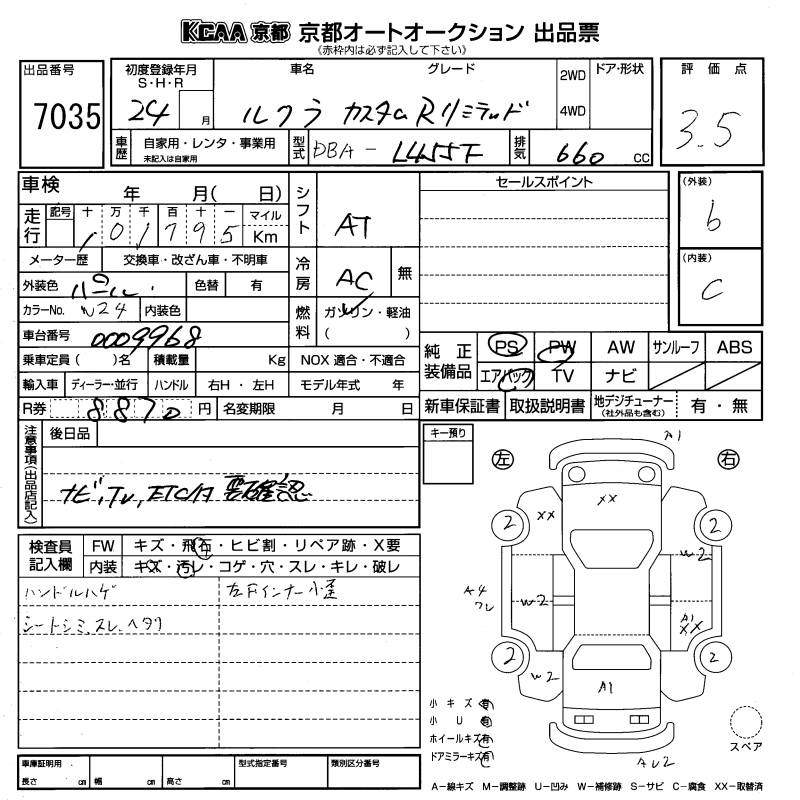 KCAA 京都 京都オートオークション 出品票
(赤枠内は必ず記入して下さい)
出品番号
7035
初度登録年月
S・H・R
24 月
車名 グレード
ルクラ カスタムRリミテッド
2WD
4WD
ドア・形状
評価点
3.5
車歴
自家用・レンタ・事業用
未記入は自家用
型式 DBA- L455F
排気 660 CC
車検 年 月( 日)
走行
記号 十 万 千 百 十 一 マイル
1 0 1 7 9 5 Km
メーター歴 交換車・改ざん車・不明車
外装色 パール 色替 有
カラーNo. W24 内装色
車台番号 0009968
乗車定員( )名 積載量 Kg NOX 適合・不適合
輸入車 ディーラー・並行 ハンドル 右H・左H モデル年式 年
R券 8870 円 名変期限 月 日
シフト AT
冷房 AC 無
燃料 ガソリン・軽油
( )
セールスポイント
(外装)
b
(内装)
C
純正装備品
PS PW AW サンルーフ ABS
エアバック TV ナビ
新車保証書 取扱説明書 地デジチューナー 有・無
(社外品も含む)
注意事項(出品店記入)
後日品
ナビ,TV,ETCは要確認
キー預り
検査員記入欄
FW キズ・飛石・ヒビ割・リペア跡・X要
内装 キズ・汚レ・コゲ・穴・スレ・キレ・破レ
ハンドルハゲ 左Fインナー小歪
シートシミ,スレ,ヘタリ
左 右
A1
XX
XX
2 2
W2
A4
ワレ
W2
A1
XX
2 2
W2
A1
AU2
小キズ 有
小U 有
ホイールキズ 有
ドアミラーキズ 有
スペア
車庫証明用
長さ cm 幅 cm 高さ cm
型式指定番号
類別区分番号
A-線キズ M-調整跡 U-凹み W-補修跡 S-サビ C-腐食 XX-取替済